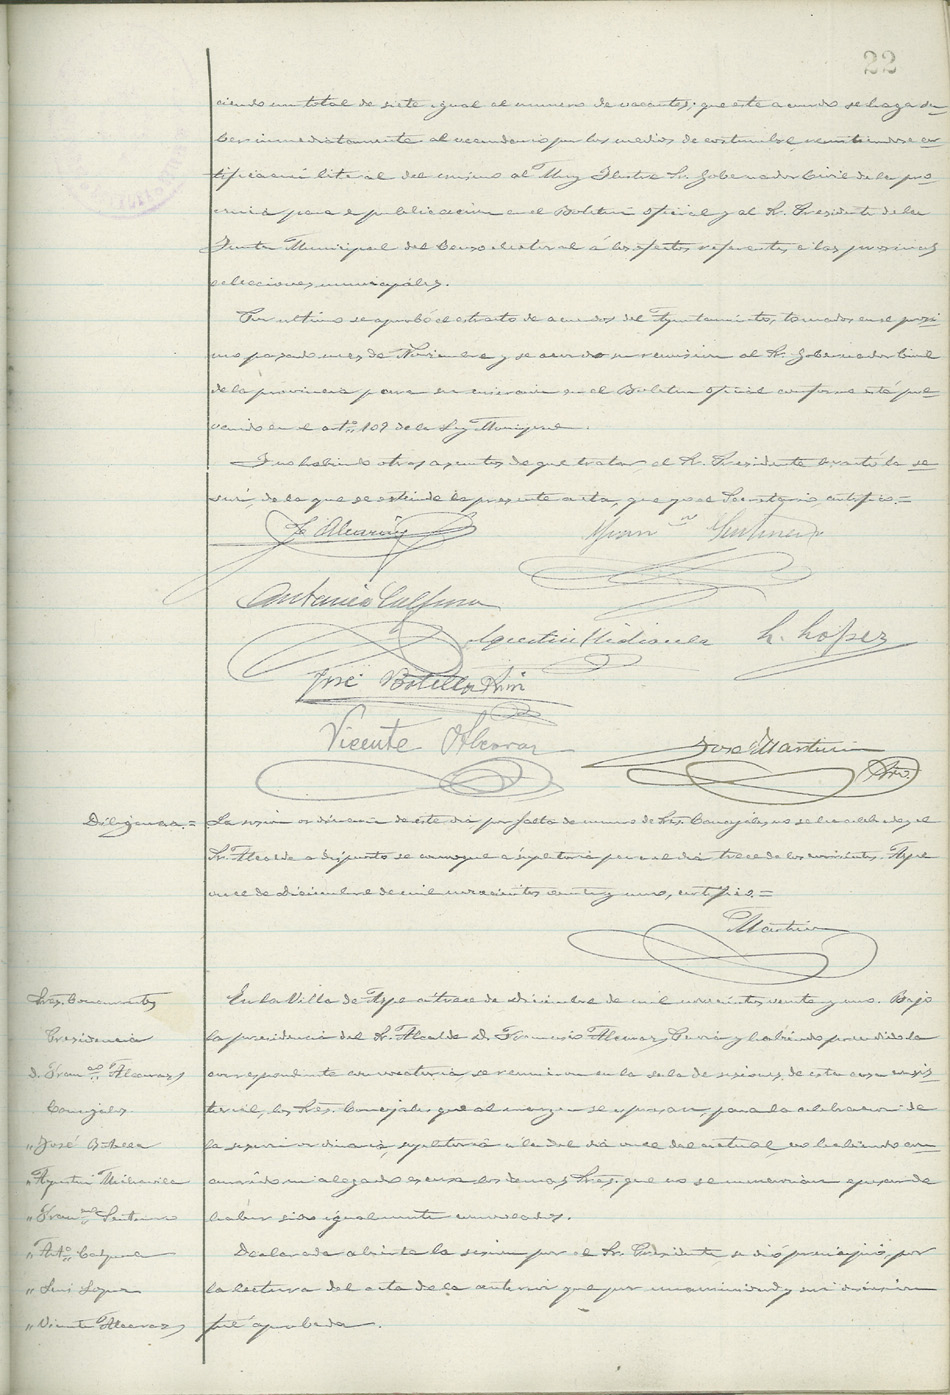 22
ciendo un total de siete igual al número de vacantes; que este acuerdo se haga sa-
ber inmediatamente al vecindario por los medios de costumbre, remitiendose cer-
tificación literal del mismo al Muy Ilustre Sr. Gobernador Civil de la pro-
vincia para su publicación en el Boletin Oficial y al Sr. Presidente de la
Junta Municipal del Censo electoral á los efectos referentes á las proximas
elecciones municipales.
Por ultimo se aprobó el extracto de acuerdos del Ayuntamiento, tomados en el proxi-
mo pasado mes de Noviembre y se acordo su remision al Sr. Gobernador Civil
de la provincia para su insercion en el Boletin Oficial conforme está pre-
venido en el artº 109 de la Ley Municipal.
Y no habiendo otros asuntos de que tratar, el Sr. Presidente levantó la se-
sión, de la que se extiende la presente acta, que yo el Secretario, certifico.=
Fº Alcaraz
Antonio Calpena
Agustin Mira
L. Lopez
José Botella
Vicente Alcaraz
José Martinez
Srio.
Diligencia.=
La sesion ordinaria de este dia por falta de numero de Sres. Concejales, no se ha celebrado y el
Sr. Alcalde a dispuesto se convoque a supletoria para el dia trece de los corrientes. Aspe
once de Diciembre de mil novecientos veinte y uno, certifico.=
Martinez
Sres. Concurrentes
Presidencia
D. Franco Alcaraz
Concejales
" José Botella
" Agustin
" Franco
" Antº Calpena
" Luis Lopez
" Vicente Alcaraz
En la Villa de Aspe á trece de Diciembre de mil novecientos veinte y uno. Bajo
la presidencia del Sr. Alcalde D. Francisco Alcaraz y habiendo precedido la
correspondiente convocatoria, se reunieron en la sala de sesiones de esta casa consis-
torial, los Sres. Concejales que al margen se expresan, para la celebracion de
la sesion ordinaria, supletoria a la del dia once del actual, no habiendo con-
currido ni alegado escusa los demas Sres. que no se mencionan apesar de
haber sido igualmente convocados.
Declarada abierta la sesion por el Sr. Presidente se dió principio, por
la lectura del acta de la anterior que por unanimidad y sin discusion
fué aprobada.